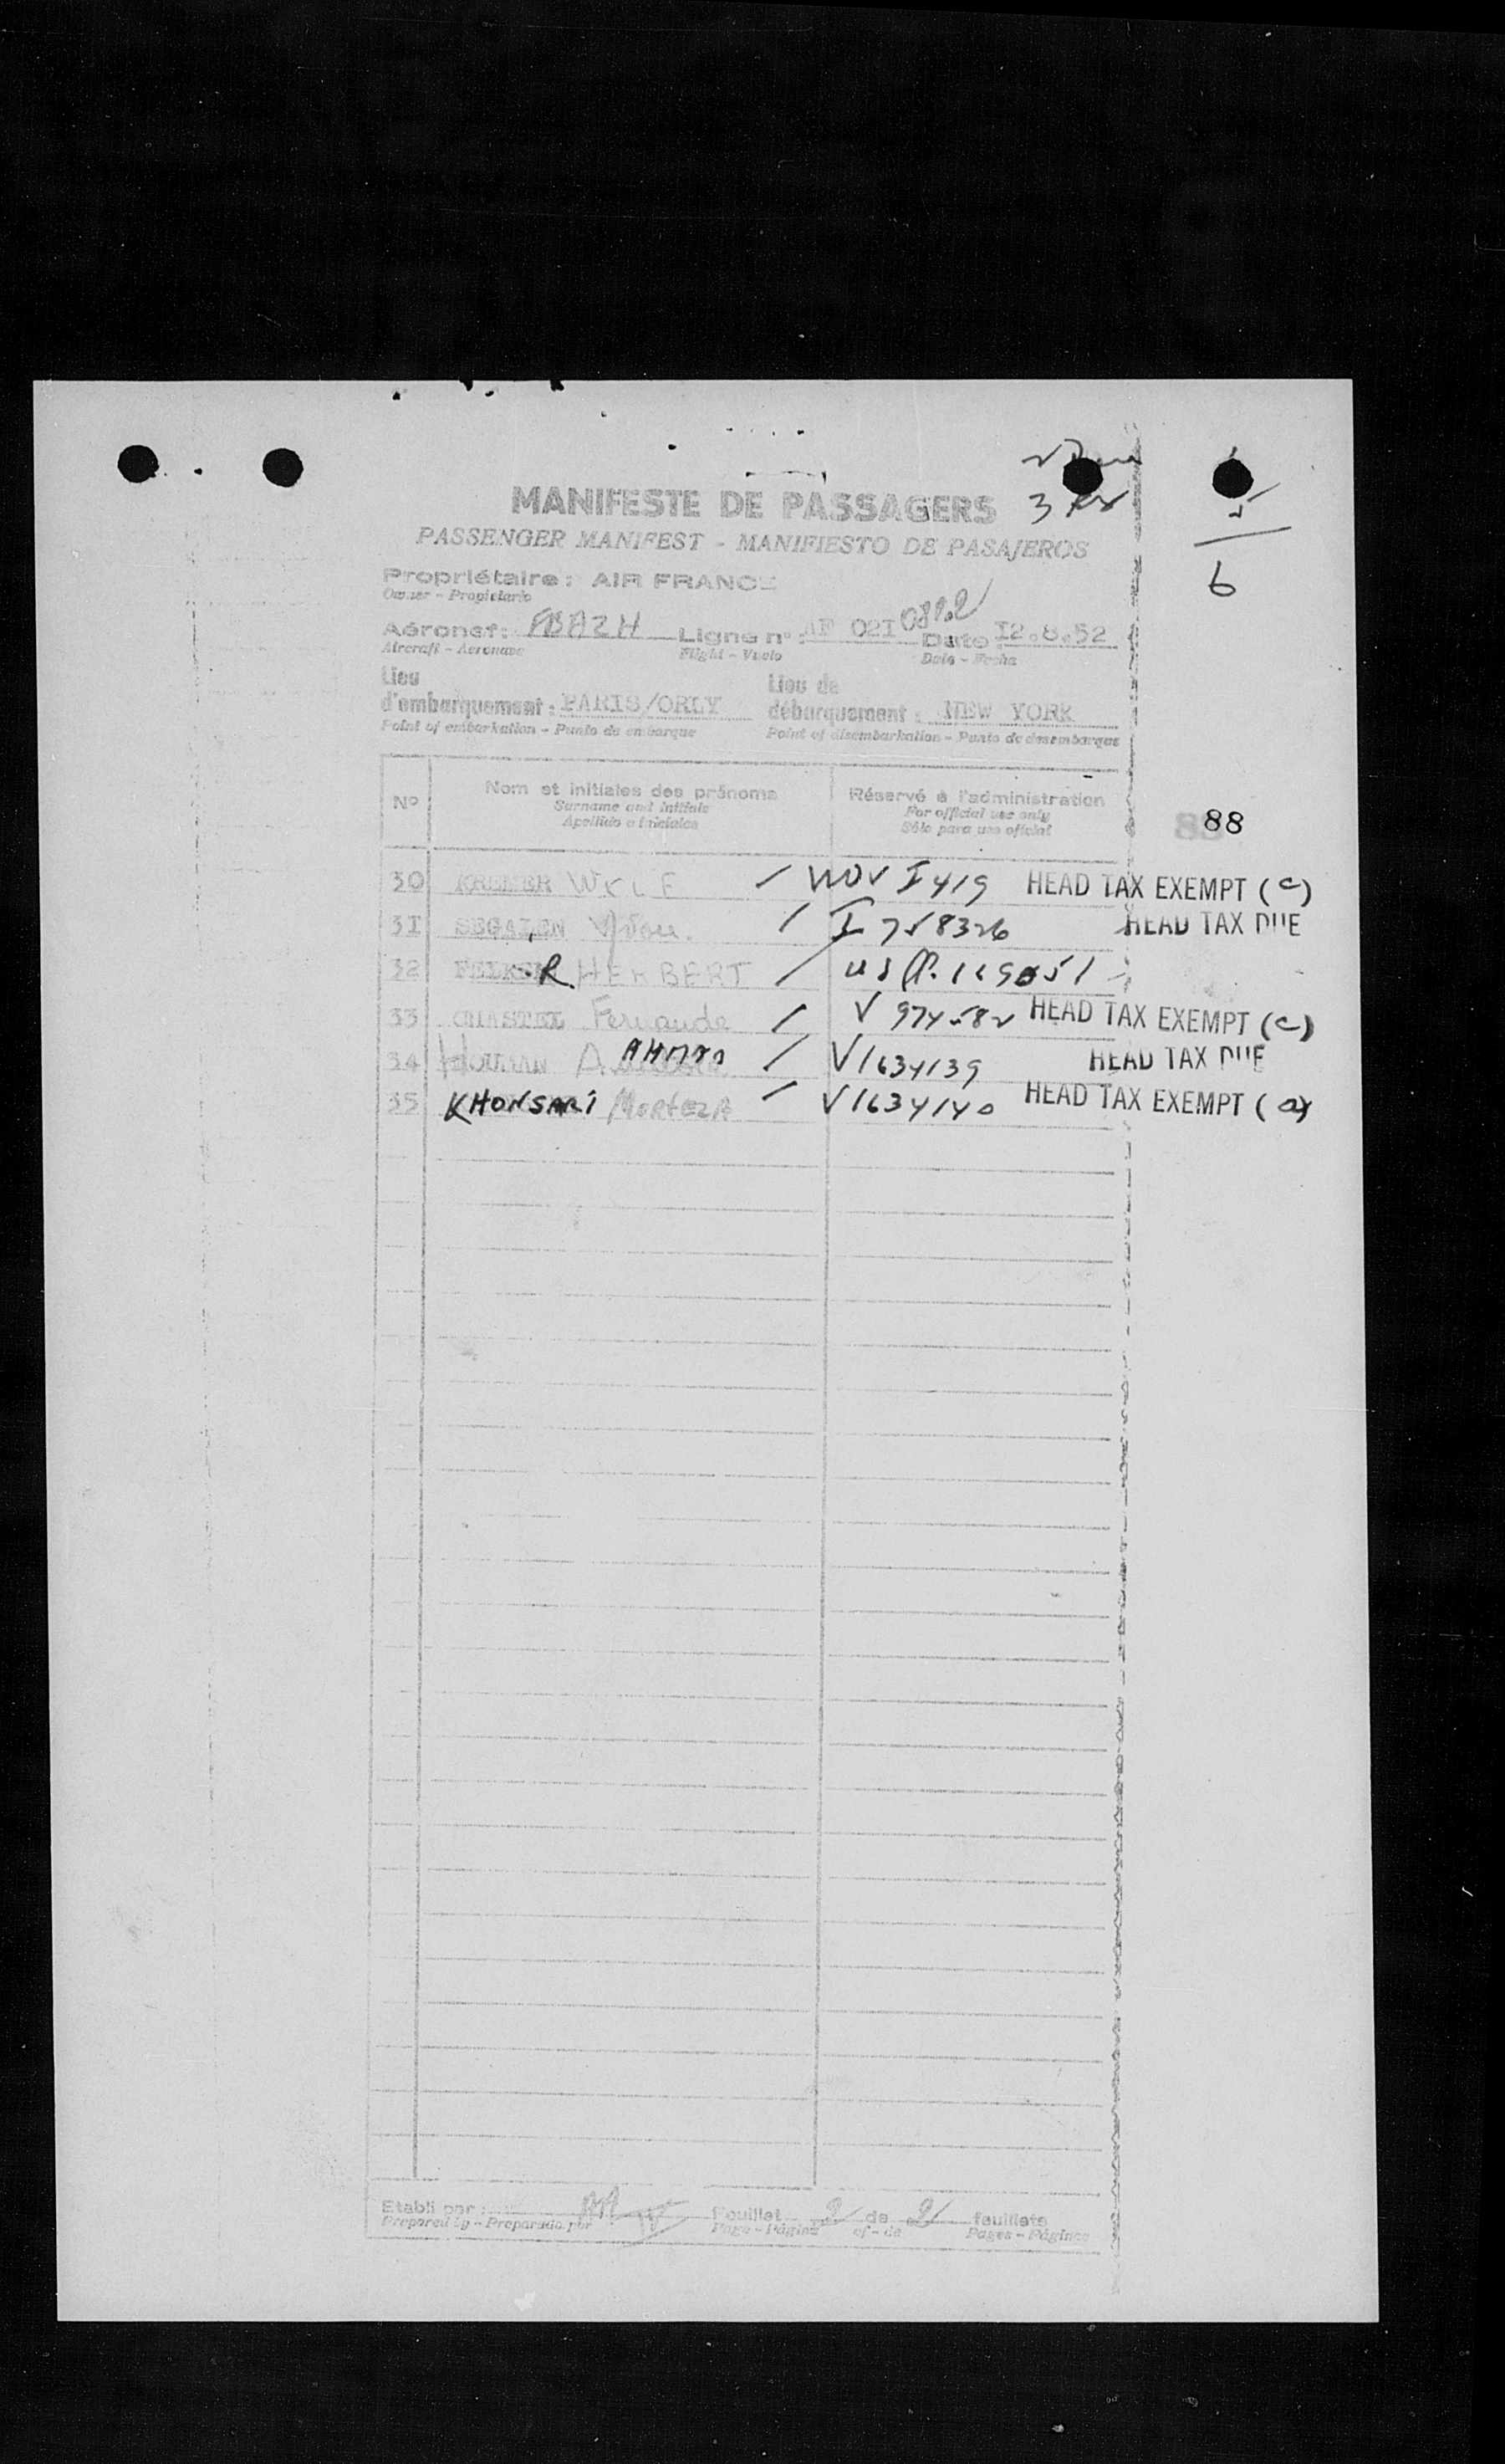 3
MANIFESTE DE PASSAGERS
PASSENGER MANIFEST - MANIFIESTO DE PASAJEROS
6
Propriétaire : AIR FRANCE
Owner - Propietario
Aéronef : FBAZH Ligne n° : AF 021 Date : I2.8.52
Aircraft - Aeronave Flight - Vuelo Date - Fecha
Lieu d'embarquement : PARIS/ORLY Lieu de débarquement : NEW YORK
Point of embarkation - Punto de embarque Point of disembarkation - Punto de desembarque
N° Nom et initiales des prénoms Réservé à l'administration
Surname and initials For official use only
Apellido e iniciales Sólo para uso oficial
88
30 KREMER / HEAD TAX EXEMPT (c)
3I SEGALEN / I 758326 HEAD TAX DUE
32 R HERBERT /
33 CHASTEL Fernande / HEAD TAX EXEMPT (c)
34 / V1634139 HEAD TAX DUE
35 KHONSARI MORTEZA / V1634140 HEAD TAX EXEMPT (a)
Etabli par : Feuillet 2 de 2 feuillets
Prepared by - Preparado por Page - Página of - de Pages - Páginas